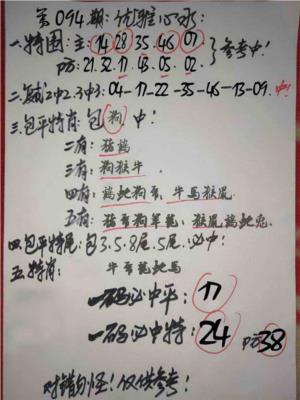 第094期:优雅心水:
一.特围:主:14 28 35.46 07 } 参考中!
防:21.32.11.43.05.02.
二.2中2.3中3:04-17-22-35-46-13-09.中!
三.包平特肖:包狗中!
二肖:猪鸡
三肖:狗猴牛.
四肖:鸡蛇狗 牛马猴鼠
五肖:猪 狗羊龙.猴鼠鸡蛇兔
四.包平特尾:包3.5.8尾.5尾.必中:
五.特肖: 牛 龙蛇马
一码必中平:17
一码必中特:24 防38
对错勿怪!仅供参考!